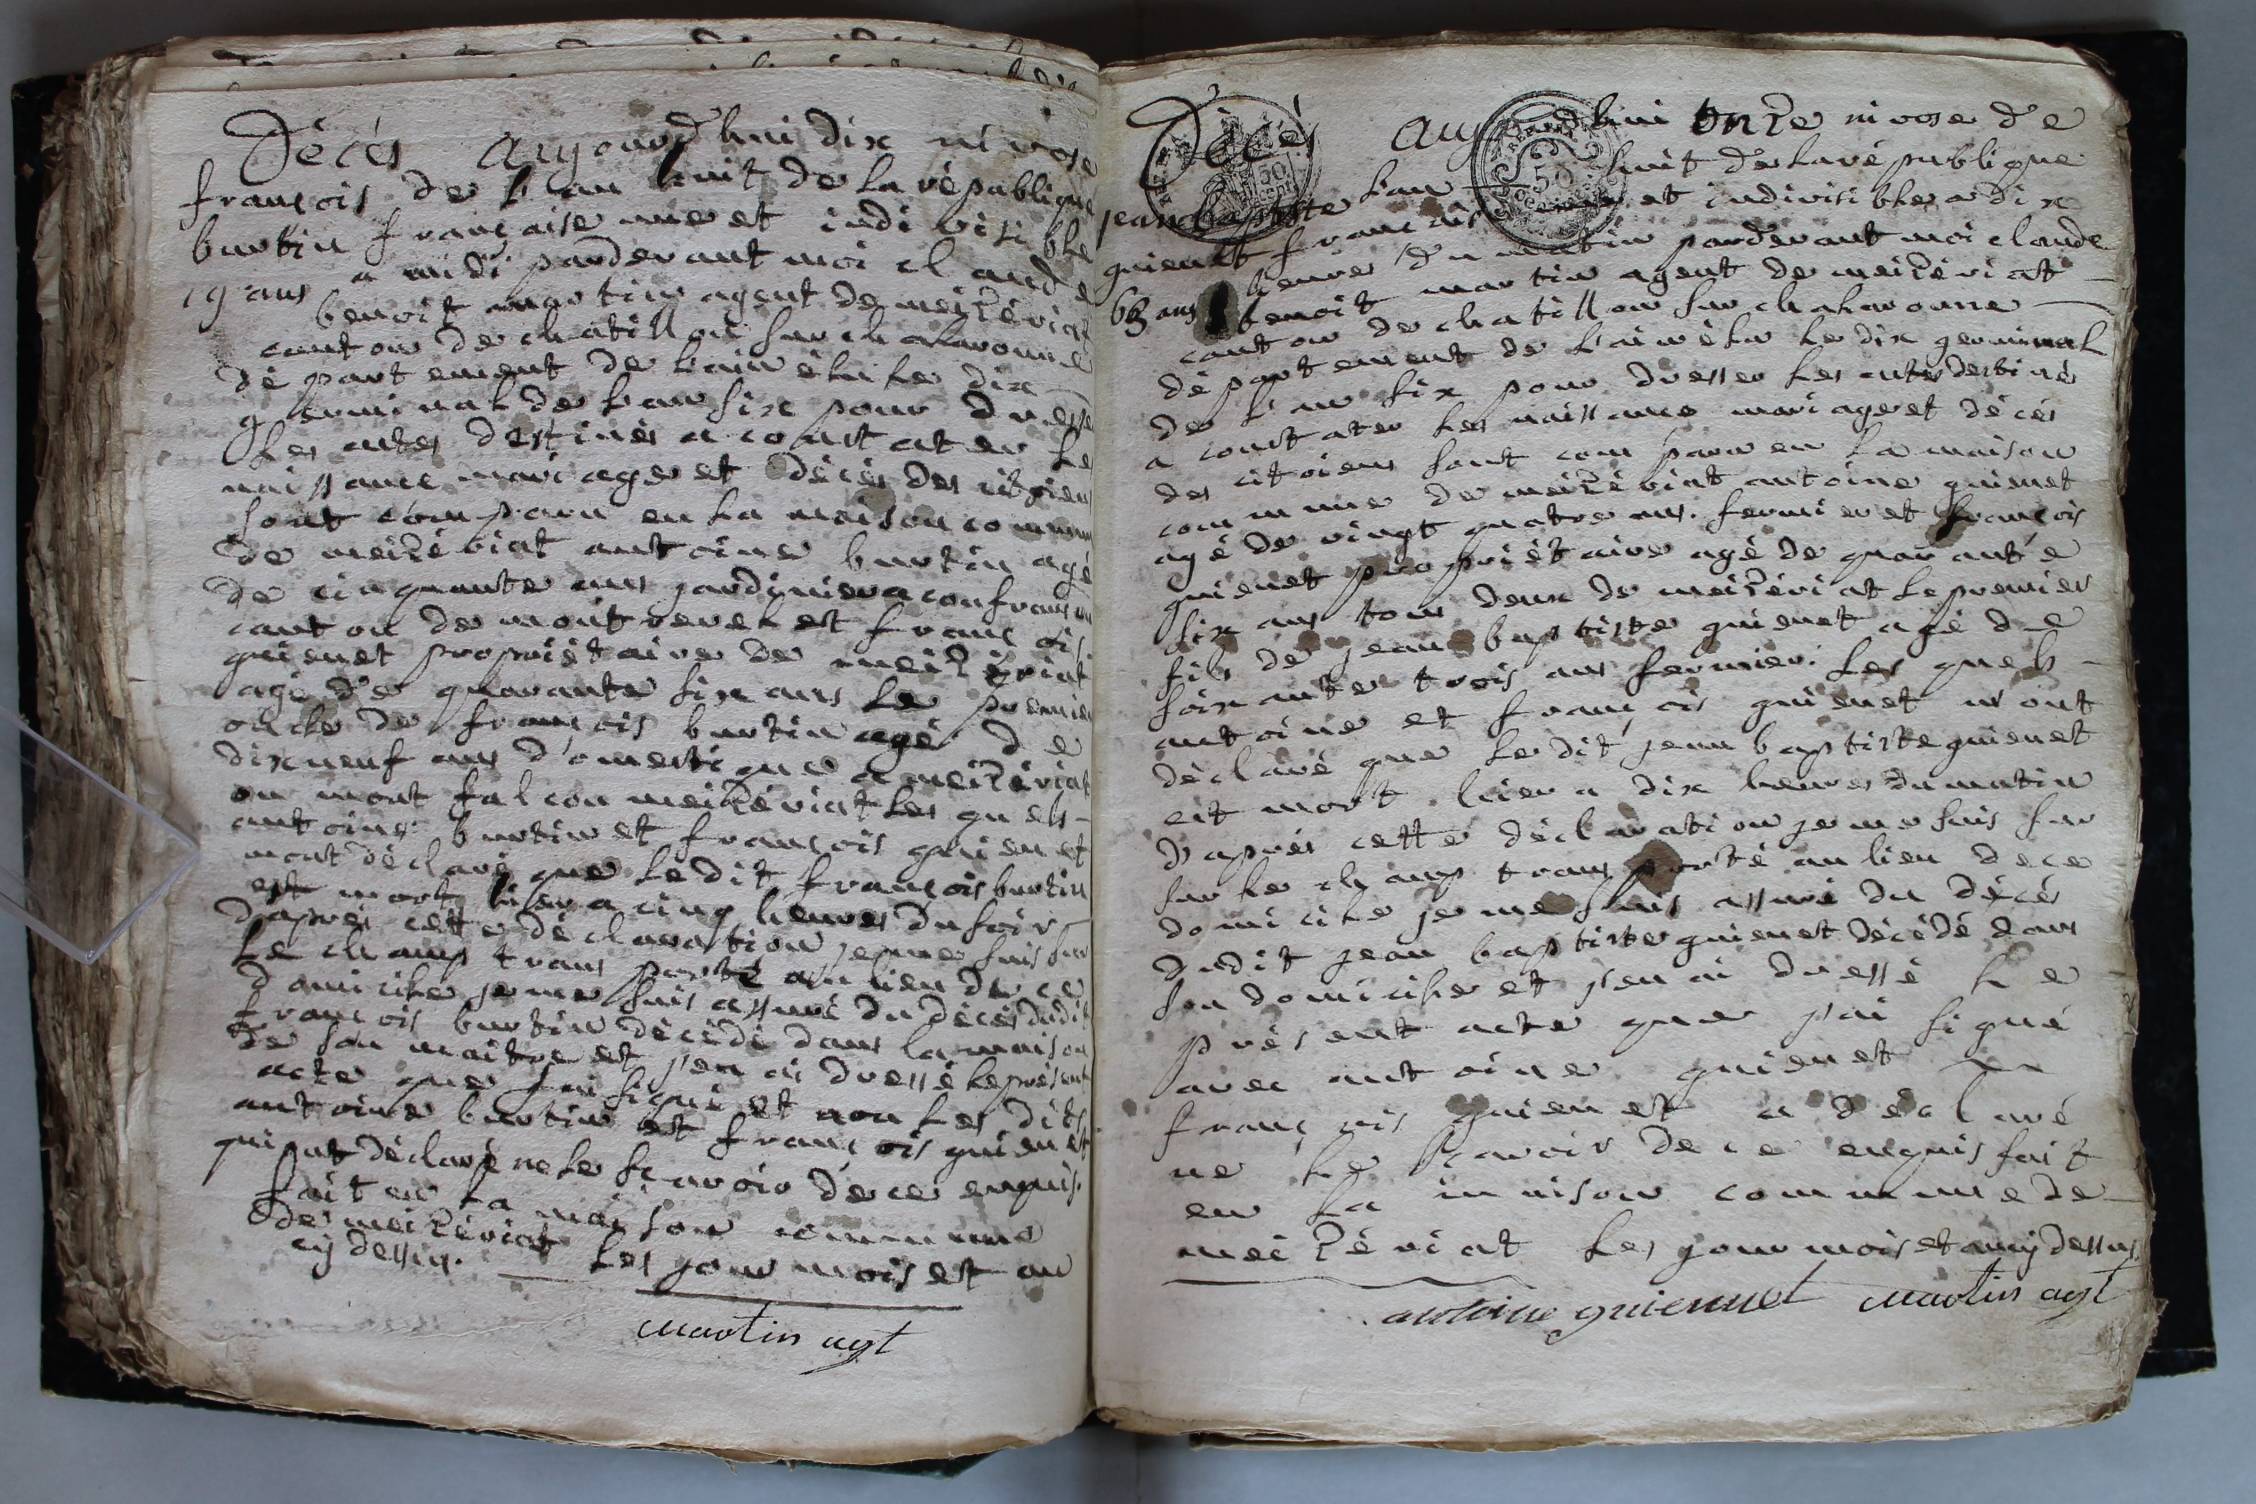 Décès aujourd'hui dix nivose
françois de l'an huit de la république
burtin française une et indivisible
19 ans a midi pardevant moi claude
benoit martin agent de meizériat
canton de chatillon sur chalaronne
département de l'ain élu le dix
germinal de l'an six pour dresse
les actes destinés a constater le
naissance mariage et décès des citoiens
sont comparu en la maison commun
de meizériat antoine burtin agé
de cinquante ans jardinier a confrançon
canton de montrevel et françois
guienet propriétaire de meizériat
agé de quarante six ans le premier
oncle de françois burtin agé de
dixneuf ans domestique a meizériat
on mont falcon meizériat les quels
antoine burtin et françois guienet
mont déclaré que le dit françois burtin
est mort hier a cinq heures du soir
d'après cette déclaration je me suis sur
le champ transporté au lieu de ce
domicile je me suis assuré du décès dudit
françois burtin décédé dans la maison
de son maitre et j'en ai dressé le présent
acte que j'ai signé et non les dits
antoine burtin et françois guienet
qui ont déclaré ne le sçavoir de ce enquis.
fait en la maison commune
de meizériat les jour mois et an
cy dessus.
martin agt
Décès aujourdhui onze nivose de
jean baptiste l'an huit de la république
guienet française une et indivisible a dix
63 ans heures du matin pardevant moi claude
benoit martin agent de meizériat
canton de chatillon sur chalaronne
département de l'ain élu le dix germinal
de l'an six pour dresser les actes destinés
a constater les naissance mariage et décès
des citoiens sont comparu en la maison
commune de meizériat antoine guienet
agé de vingt quatre ans. fermier et françois
guienet propriétaire agé de quarante
six ans tous deux de meizériat le premier
fils de jean baptiste guienet agé de
soixante trois ans fermier. les quels
antoine et françois guienet m'ont
déclaré que le dit jean baptiste guienet
est mort hier a dix heures du matin
d'après cette déclaration je me suis sur
sur le champ transporté au lieu de ce
domicile je me suis assuré du décès
dudit jean baptiste guienet décédé dans
son domicile et j'en ai dressé le
présent acte que j'ai signé
avec antoine guienet
françois guienet a déclaré
ne le sçavoir de ce enquis fait
en la maison commune de
meizériat les jour mois et an cy dessus
antoine guiennet martin agt